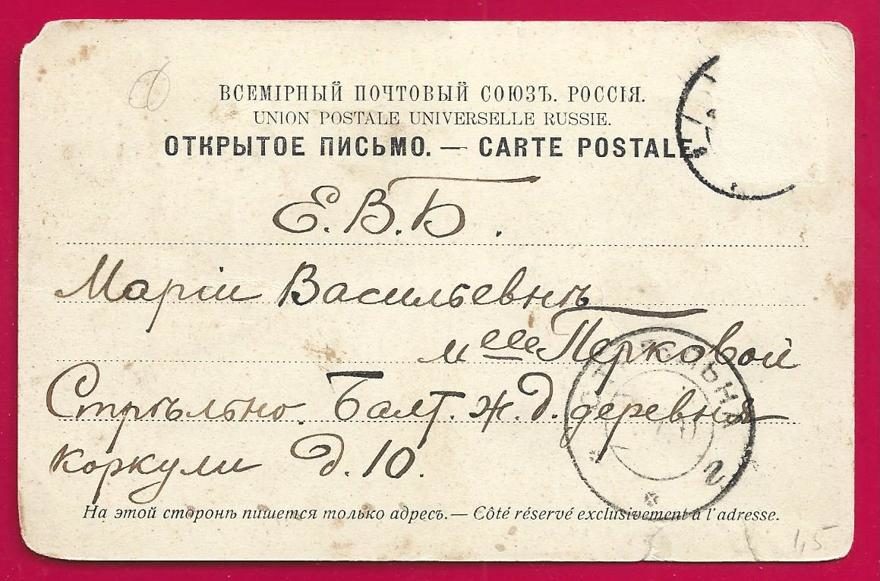 ВСЕМІРНЫЙ ПОЧТОВЫЙ СОЮЗЪ. РОССІЯ.
UNION POSTALE UNIVERSELLE RUSSIE.
ОТКРЫТОЕ ПИСЬМО. — CARTE POSTALE
Е.В.Б.
Маріи Васильевнѣ
Перковой
Стрѣльно. Балт. ж. д. деревня
коркули д. 10.
На этой сторонѣ пишется только адресъ. — Côté réservé exclusivement à l'adresse.
45